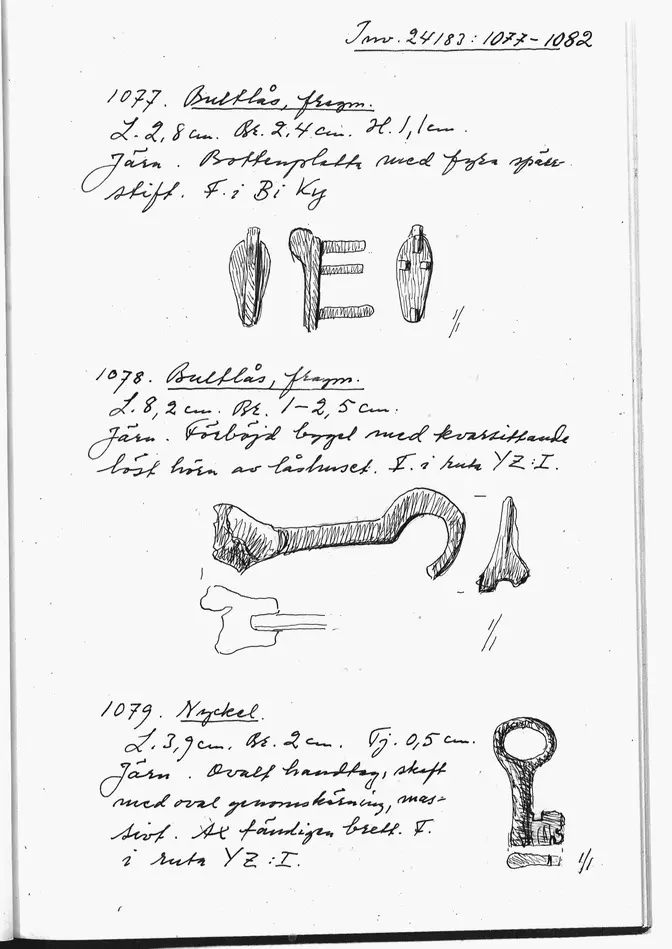 Inv. 24183:1077-1082
1077. Bultlås, fragm.
L. 2,8 cm. Br. 2,4 cm. H. 1,1 cm.
Järn. Bottenplatta med fyra spärr-
stift. F. i Bi Ky
1/1
1078. Bultlås, fragm.
L. 8,2 cm. Br. 1-2,5 cm.
Järn. Förböjd bygel med kvarsittande
löst hörn av låshuset. F. i ruta YZ:I.
1/1
1079. Nyckel.
L. 3,9 cm. Br. 2 cm. Tj. 0,5 cm.
Järn. Ovalt handtag, skaft
med oval genomskärning, mas-
sivt. Ax tändigen brett. F.
i ruta YZ:I.
1/1